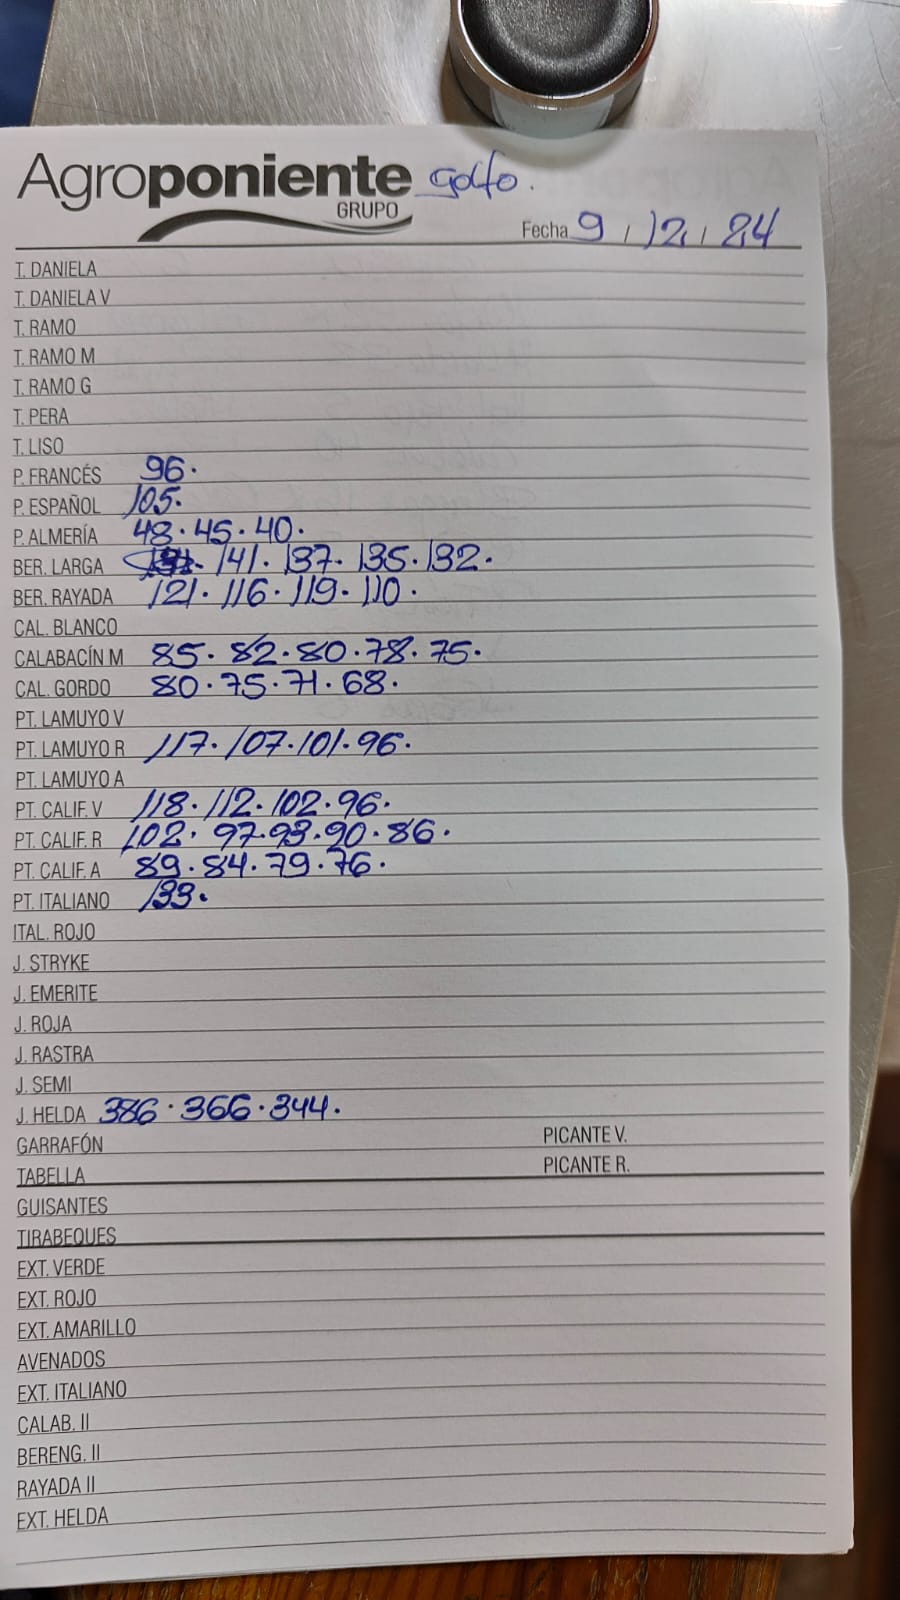 Agroponiente golfo.
GRUPO
Fecha 9 / 12 / 24
T. DANIELA
T. DANIELA V
T. RAMO
T. RAMO M
T. RAMO G
T. PERA
T. LISO
P. FRANCÉS 96.
P. ESPAÑOL 105.
P. ALMERÍA 48. 45. 40.
BER. LARGA 141. 137. 135. 132.
BER. RAYADA 121. 116. 119. 110.
CAL. BLANCO
CALABACÍN M 85. 82. 80. 78. 75.
CAL. GORDO 80. 75. 71. 68.
PT. LAMUYO V
PT. LAMUYO R 117. 107. 101. 96.
PT. LAMUYO A
PT. CALIF. V 118. 112. 102. 96.
PT. CALIF. R 102. 97. 93. 90. 86.
PT. CALIF. A 89. 84. 79. 76.
PT. ITALIANO 133.
ITAL. ROJO
J. STRYKE
J. EMERITE
J. ROJA
J. RASTRA
J. SEMI
J. HELDA 386. 366. 344.
GARRAFÓN PICANTE V.
TABELLA PICANTE R.
GUISANTES
TIRABEQUES
EXT. VERDE
EXT. ROJO
EXT. AMARILLO
AVENADOS
EXT. ITALIANO
CALAB. II
BERENG. II
RAYADA II
EXT. HELDA